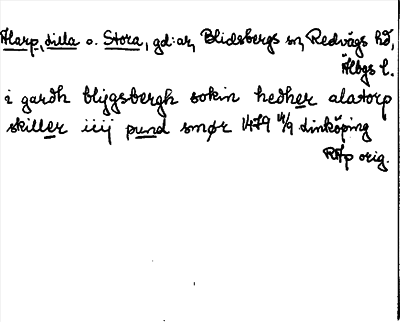 Älarp, Lilla o. Stora, gd:ar, Blidsbergs sn, Redvägs hd,
Älvbgs l.
i gardh blijgsbergh sokin hedher alatorp
skiller iiij pund smør 1479 14/9 Linköping
RAp orig.